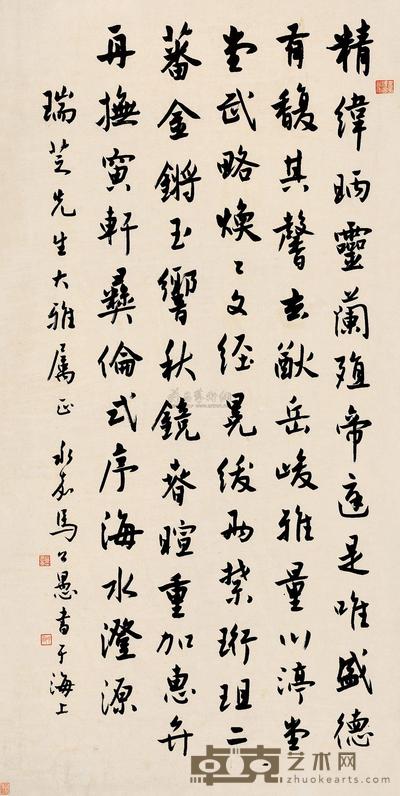 精緯昞靈蘭殖帝庭是唯盛德
有馥其馨玄猷岳峻雅量川渟堂
堂武略焕〻文经晃後两禁珩珇二
蕃金锵玉響秋鏡春暄重加惠弁
再撫寅軒彝倫式序海水澄源
瑞芝先生大雅屬正 永嘉馬公愚書于海上
卓克艺术网
zhuokearts.com